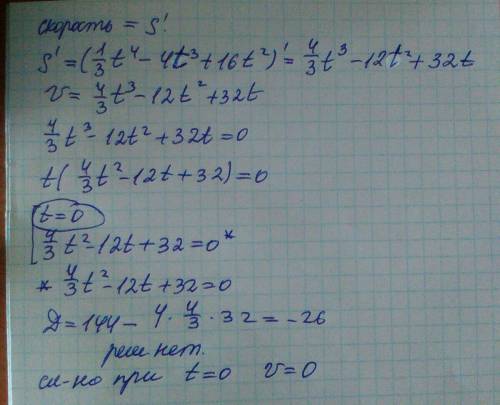 скорость = S'
S' = (1/3 t⁴ - 4t³ + 16t²)' = 4/3 t³ - 12t² + 32t
v = 4/3 t³ - 12t² + 32t
4/3 t³ - 12t² + 32t = 0
t( 4/3 t² - 12t + 32) = 0
t = 0
4/3 t² - 12t + 32 = 0 *
* 4/3 t² - 12t + 32 = 0
Д = 144 - 4 · 4/3 · 32 = -26
реш нет.
сл-но при t = 0 v = 0